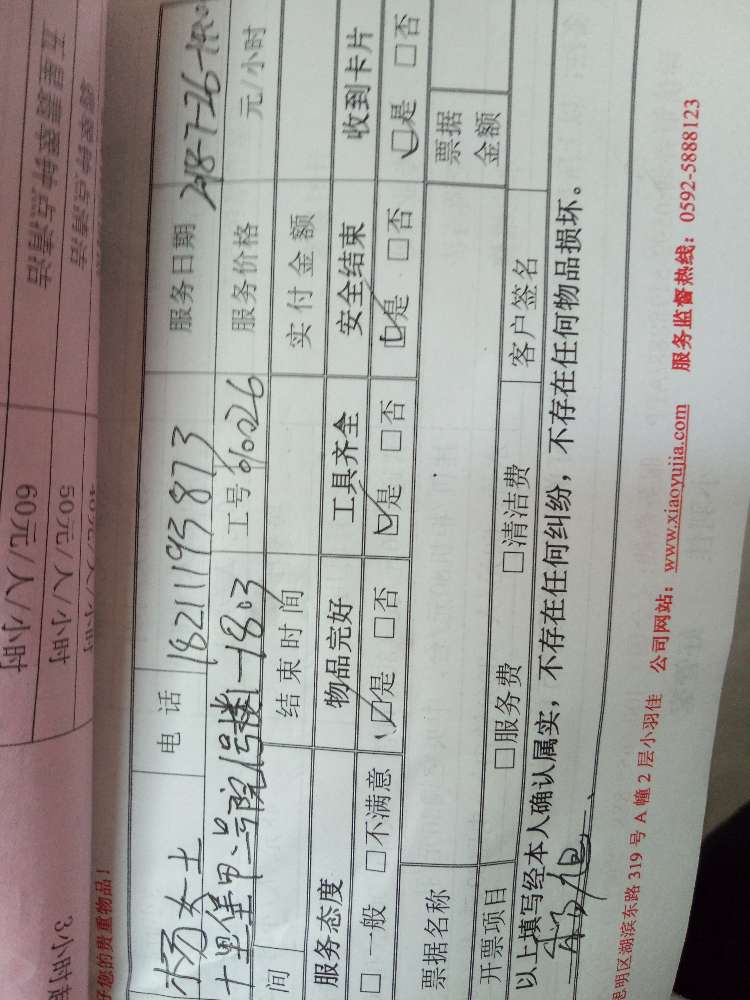 60元/人/小时
50元/人/小时
3小时
子您的贵重物品！
杨女士 电话 18211193873 服务日期
十里堡甲二号院1号楼1-1803 工号 服务价格 元/小时
间 结束时间 实付金额
服务态度 物品完好 工具齐全 安全结束 收到卡片
□一般 □不满意 □是 □否 □是 □否 □是 □否 □是 □否
票据名称 票据金额
开票项目 □服务费 □清洁费 客户签名
以上填写经本人确认属实，不存在任何纠纷，不存在任何物品损坏。
思明区湖滨东路 319 号 A 幢 2 层小羽佳 公司网站：www.xiaoyujia.com 服务监督热线：0592-5888123